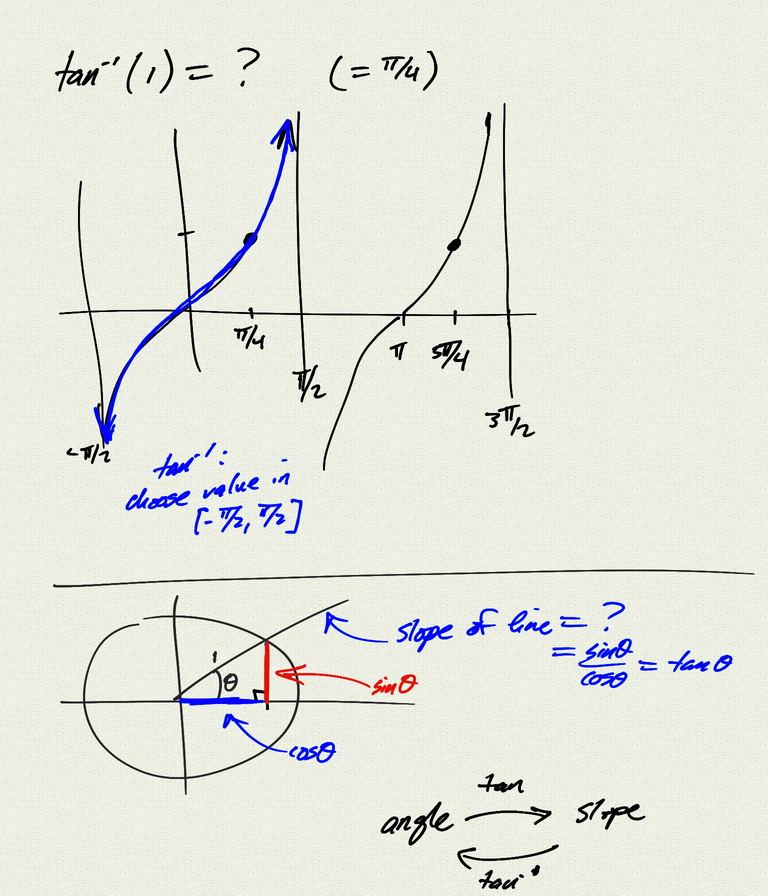 tan⁻¹(1) = ? (= π/4)
π/4
π
5π/4
π/2
3π/2
-π/2
tan⁻¹:
choose value in
[-π/2, π/2]
slope of line = ?
= sinθ/cosθ = tanθ
1
θ
sinθ
cosθ
tan
angle slope
tan⁻¹